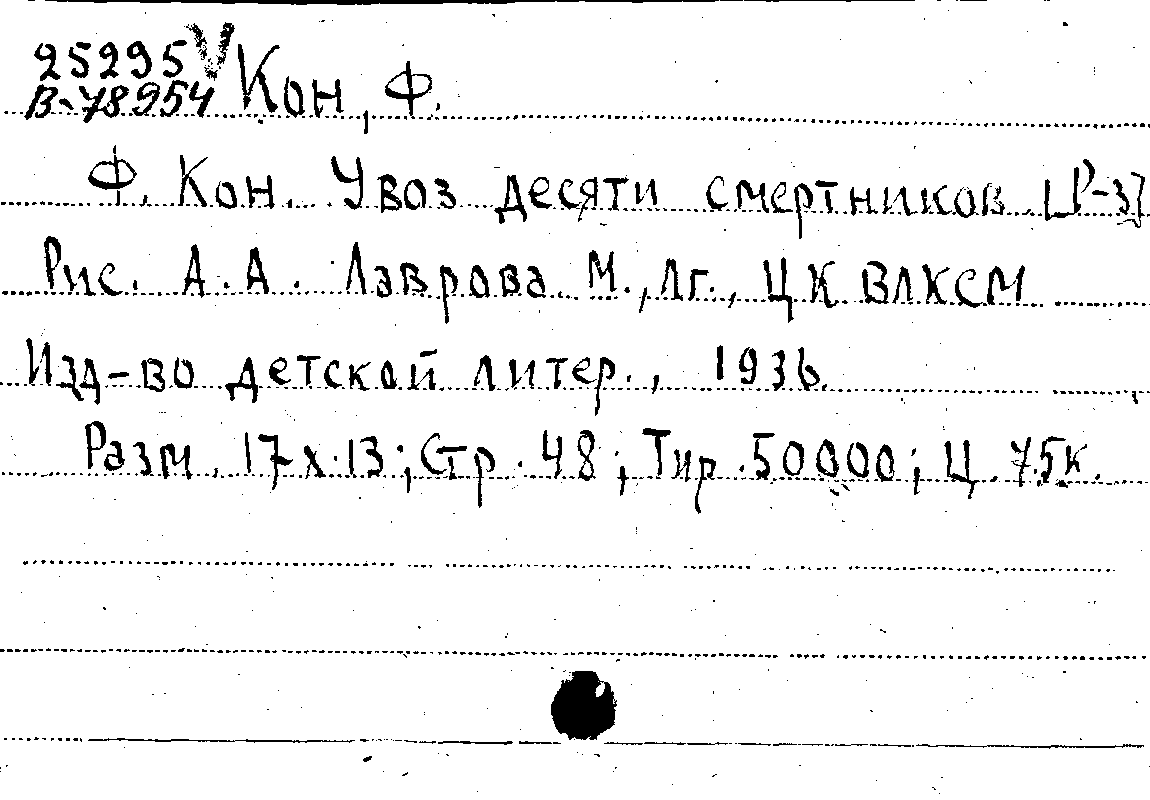 25295 V
В-78954 Кон, Ф.
Ф. Кон. Увоз десяти смертников. [Р-з]
Рис. А. А. Лаврова. М., Лг., ЦК ВЛКСМ
Изд-во детской литер., 1936.
Разм. 17х13; Стр. 48; Тир. 50000; Ц. 75к.